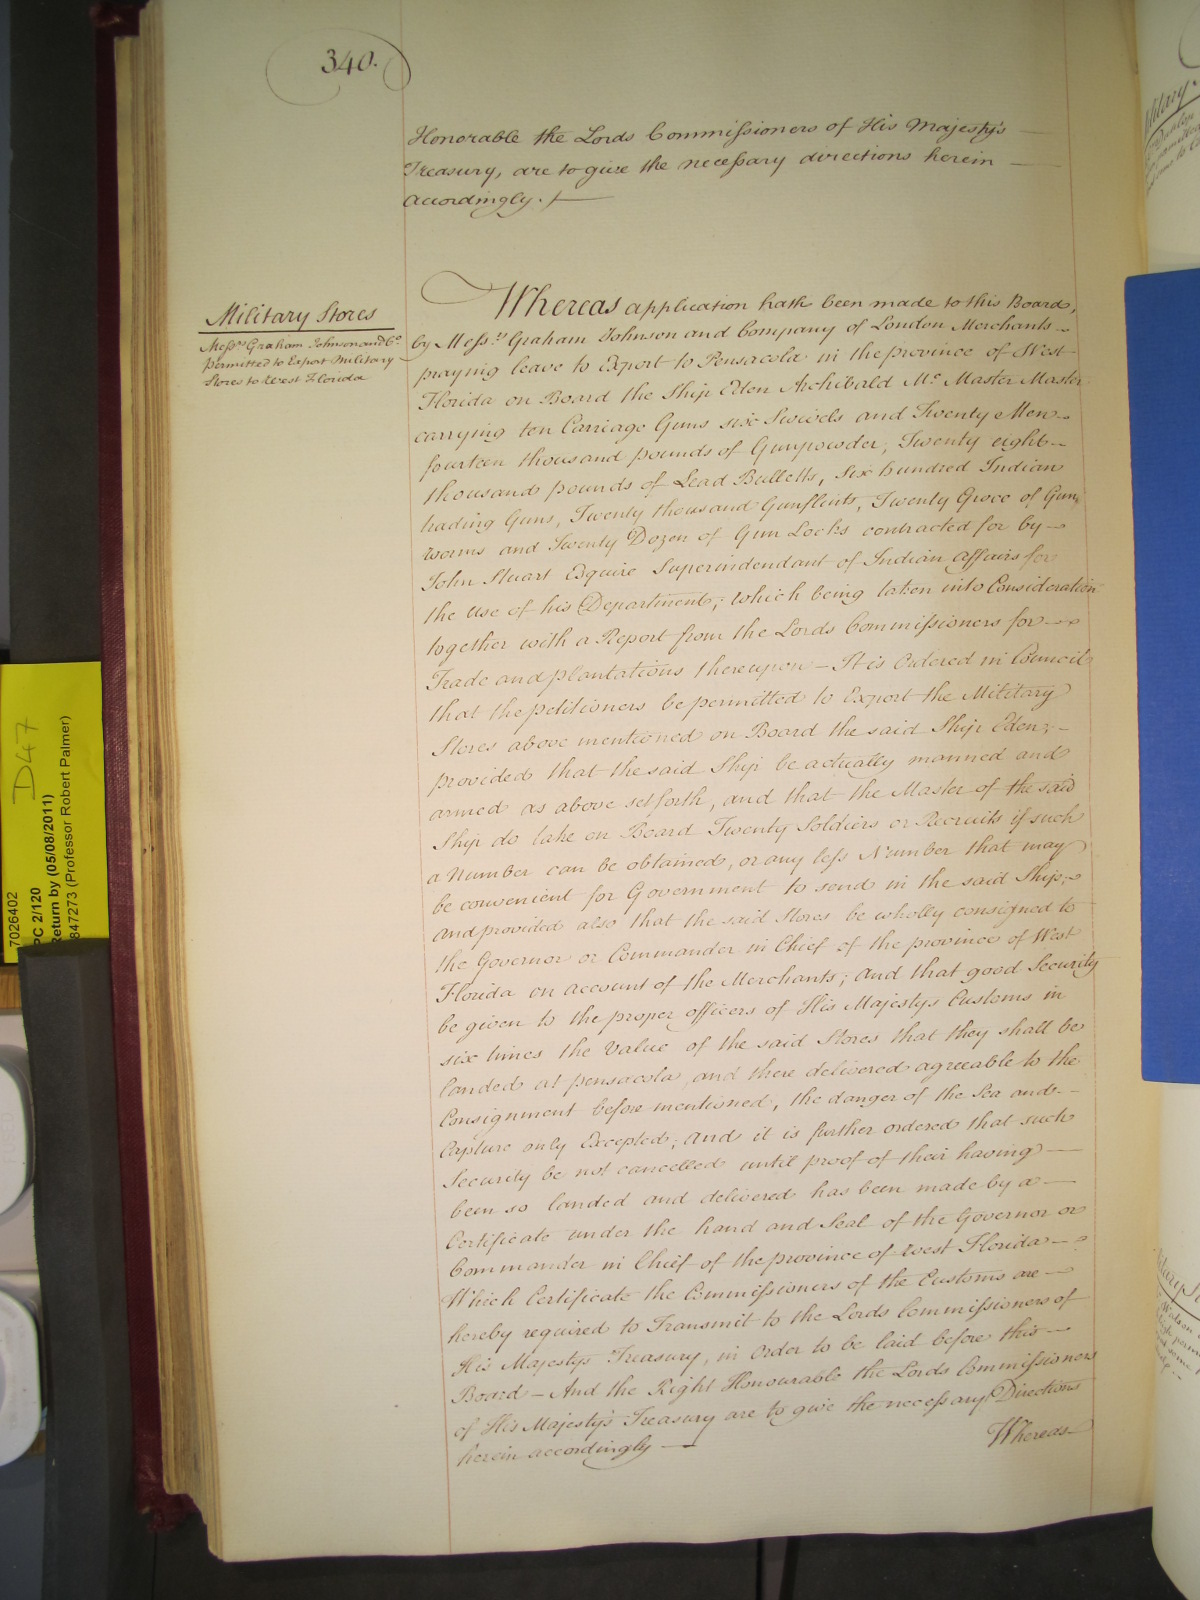 340.
Honorable the Lords Commissioners of His Majesty's
Treasury, are to give the necessary directions herein
accordingly.
Military Stores
Messrs Graham Johnson and Co.
permitted to Export Military
Stores to West Florida
Whereas application hath been made to this Board,
by Messrs Graham Johnson and Company of London Merchants
praying leave to Export to Pensacola in the province of West
Florida on Board the Ship Eden Archibald Mc Master Master
carrying ten Carriage Guns six Swivels and Twenty Men
fourteen thousand pounds of Gunpowder, Twenty eight
thousand pounds of Lead Bulletts, Six hundred Indian
trading Guns, Twenty thousand Gunflints, Twenty Groce of Gun
worms and Twenty Dozen of Gun Locks contracted for by
John Stuart Esquire Superindendant of Indian Affairs for
the use of his Department; which being taken into Consideration
together with a Report from the Lords Commissioners for
Trade and plantations thereupon — It is Ordered in Council
that the petitioners be permitted to Export the Military
Stores above mentioned on Board the said Ship Eden;
provided that the said Ship be actually manned and
armed as above setforth, and that the Master of the said
Ship do take on Board Twenty Soldiers or Recruits if such
a Number can be obtained, or any less Number that may
be convenient for Government to send in the said Ship;
and provided also that the said Stores be wholly consigned to
the Governor or Commander in Chief of the province of West
Florida on account of the Merchants; and that good Security
be given to the proper officers of His Majestys Customs in
six times the Value of the said Stores that they shall be
landed at pensacola and there delivered agreeable to the
Consignment before mentioned, the danger of the Sea and
Capture only Excepted; and it is further ordered that such
Security be not cancelled until proof of their having
been so landed and delivered has been made by a
Certificate under the hand and Seal of the Governor or
Commander in Chief of the province of West Florida
Which Certificate the Commissioners of the Customs are
hereby required to Transmit to the Lords Commissioners of
His Majestys Treasury, in Order to be laid before this
Board — And the Right Honourable the Lords Commissioners
of His Majesty's Treasury are to give the necessary Directions
herein accordingly —
Whereas
D47
7026402
PC 2/120
Return by (05/08/2011)
847273 (Professor Robert Palmer)